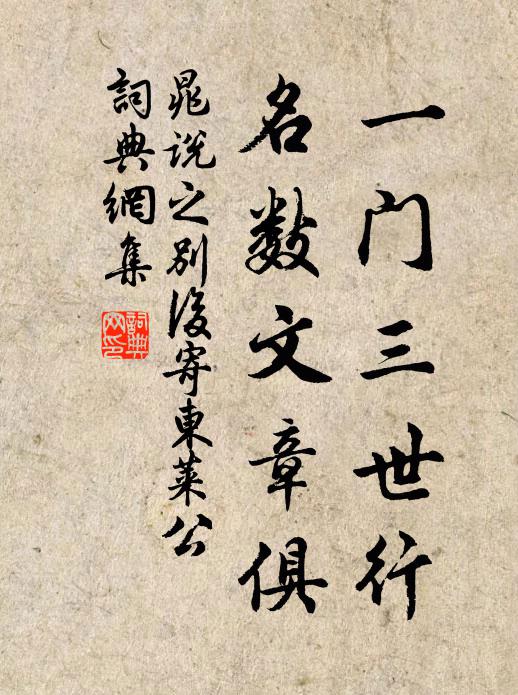 一门三世行
名数文章俱
晁说之别後寄東莱公
詞典網集
詞典
网印